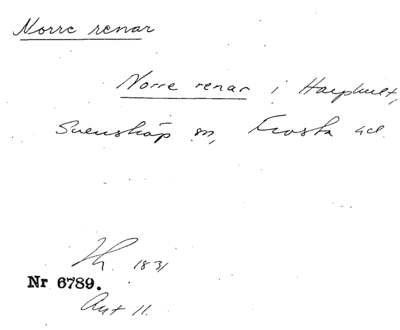 Norre renar
Norre renar i Harphult,
Svensköp sn, Frosta hd.
Th. 1831
Nr 6789.
Ant 11.